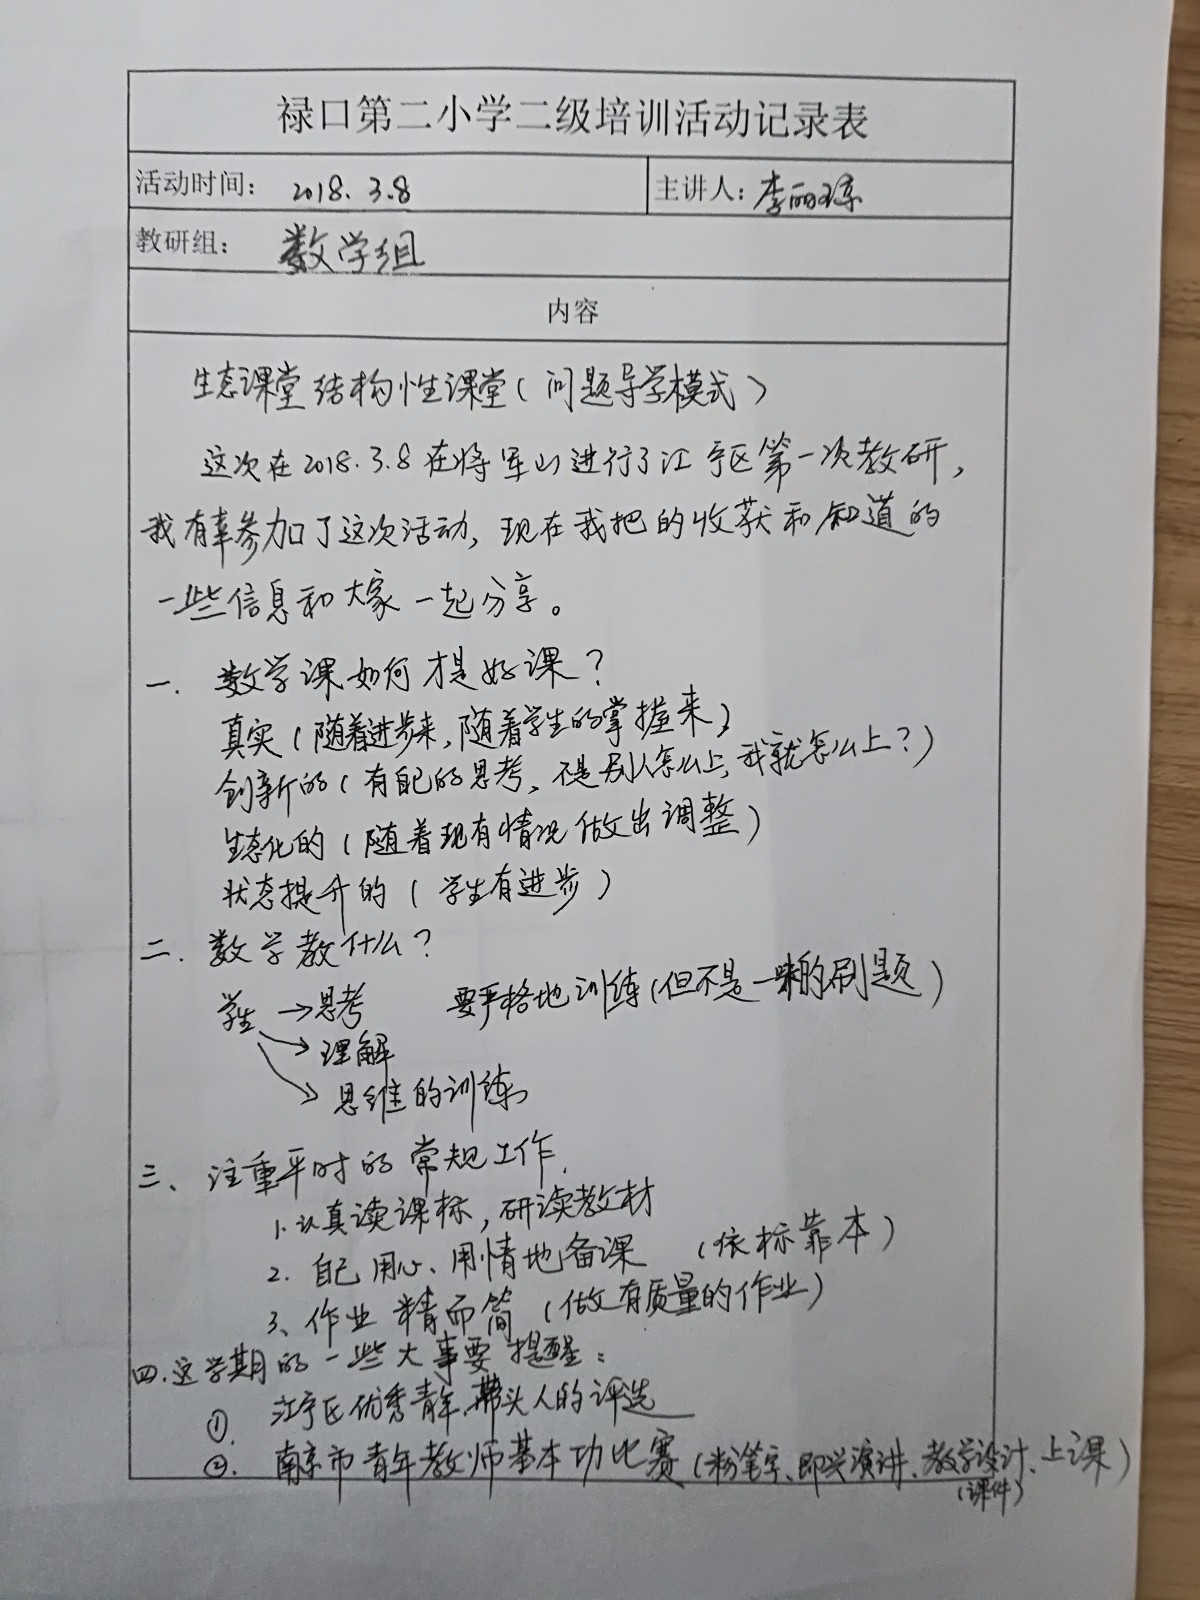 禄口第二小学二级培训活动记录表
活动时间： 2018.3.8 主讲人：李丽琼
教研组： 数学组
内容
生态课堂 结构性课堂（问题导学模式）
这次在2018.3.8在将军山进行了江宁区第一次教研，
我有幸参加了这次活动，现在我把的收获和知道的
一些信息和大家一起分享。
一．数学课如何才是好课？
真实（随着进步来，随着学生的掌握来）
创新的（有自己的思考，不是别人怎么上，我就怎么上？）
生态化的（随着现有情况做出调整）
状态提升的（学生有进步）
二．数学教什么？
学生 →思考 要严格地训练（但不是一味的刷题）
→理解
→思维的训练
三、注重平时的常规工作．
1.认真读课标，研读教材
2.自己用心、用情地备课 （依标靠本）
3、作业 精而简（做有质量的作业）
四．这学期的一些大事要提醒：
①．江宁区优秀青年、带头人的评选
②．南京市青年教师基本功比赛（粉笔字、即兴演讲、教学设计、上课）
（课件）